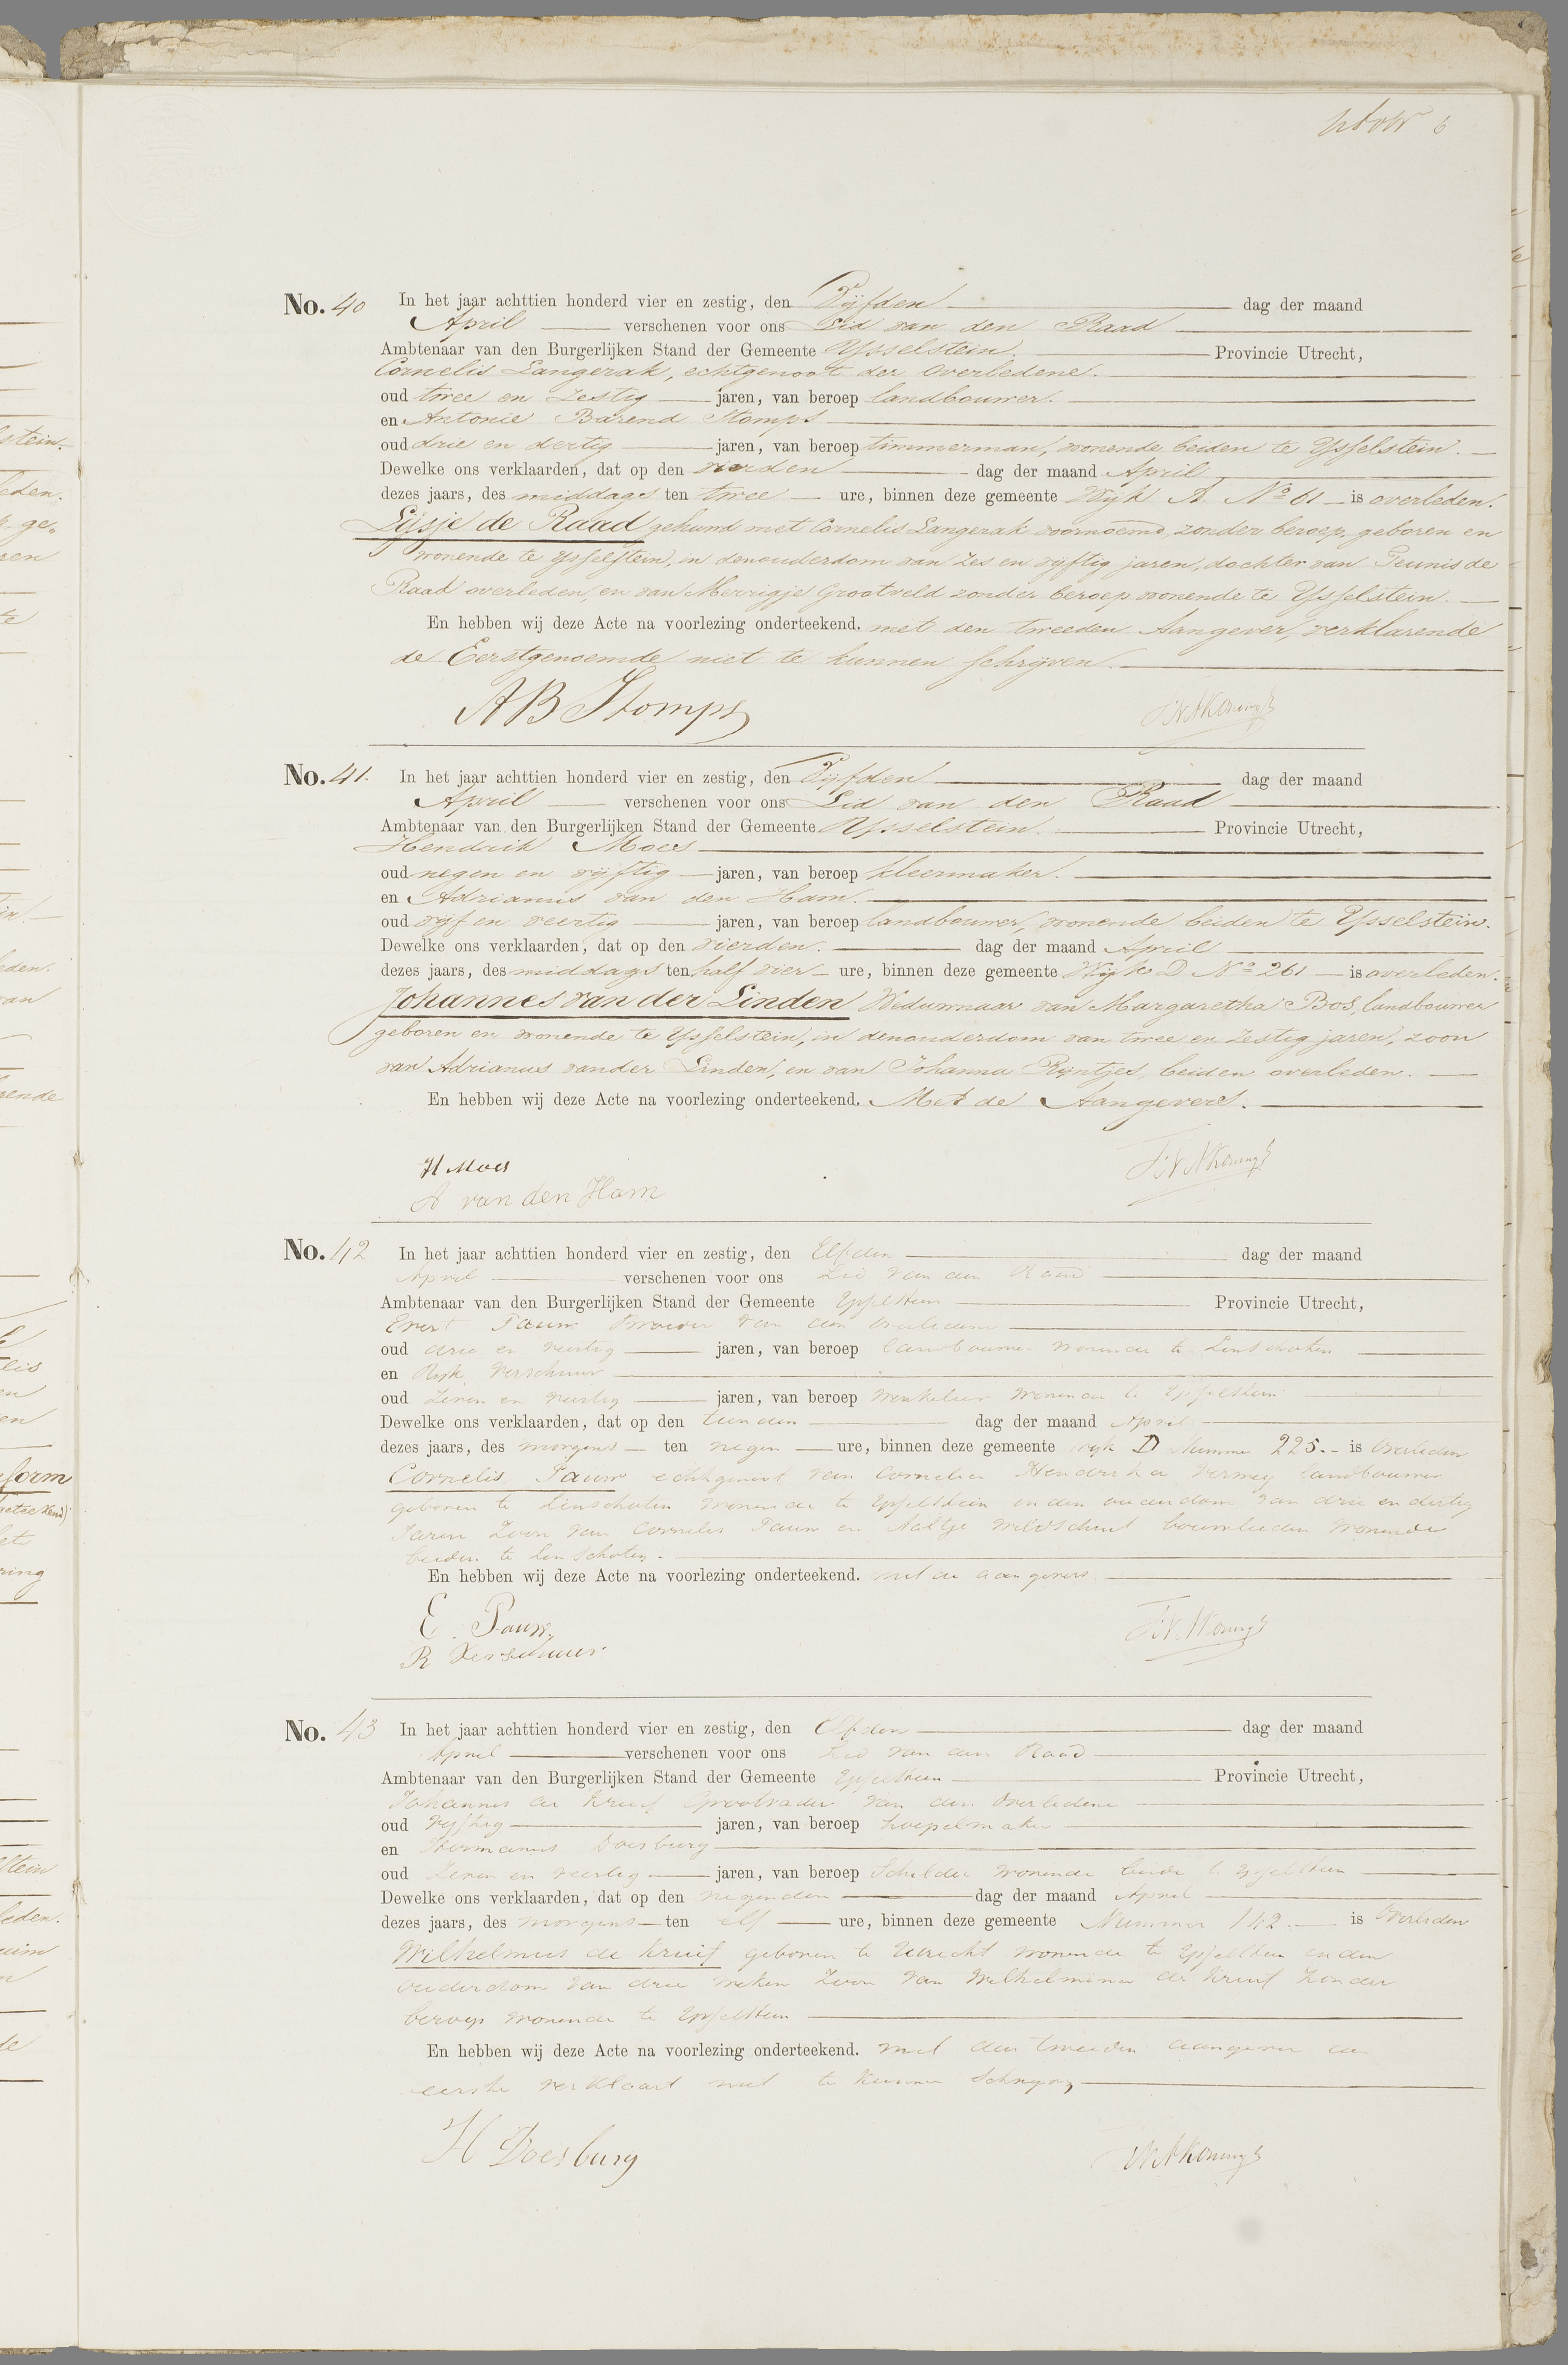 6
No. 40 In het jaar achttien honderd vier en zestig, den Vijfden dag der maand
April verschenen voor ons Lid van den Raad
Ambtenaar van den Burgerlijken Stand der Gemeente IJsselstein. Provincie Utrecht,
Cornelis Langerak, echtgenoot der Overledene.
oud twee en Zestig jaren, van beroep landbouwer.
en Antonie Barend Stomps
oud drie en dertig jaren, van beroep timmerman, wonende beiden te IJsselstein.
Dewelke ons verklaarden, dat op den vierden dag der maand April
dezes jaars, des middags ten twee ure, binnen deze gemeente Wijk A No 61 is overleden.
Lijsje de Raad gehuwd met Cornelis Langerak voornoemd, zonder beroep, geboren en
wonende te IJsselstein, in denouderdom van Zes en vijftig jaren, dochter van Teunis de
Raad overleden, en van Merrigje Grootveld zonder beroep wonende te IJsselstein.
En hebben wij deze Acte na voorlezing onderteekend. met den tweeden Aangever, verklarende
de Eerstgenoemde niet te kunnen schrijven.
AB Stomps
No. 41. In het jaar achttien honderd vier en zestig, den Vijfden dag der maand
April verschenen voor ons Lid van den Raad
Ambtenaar van den Burgerlijken Stand der Gemeente IJsselstein. Provincie Utrecht,
Hendrik Moes
oud negen en vijftig jaren, van beroep kleermaker.
en Adrianus van den Ham.
oud vijf en veertig jaren, van beroep landbouwer, wonende beiden te IJsselstein.
Dewelke ons verklaarden, dat op den vierden. dag der maand April
dezes jaars, des middags ten half vier ure, binnen deze gemeente Wijk D No 261 is overleden.
Johannes van der Linden Weduwnaar van Margaretha Bos, landbouwer
geboren en wonende te IJsselstein, in denouderdom van twee en Zestig jaren, zoon
van Adrianus vander Linden, en van Johanna Rijntjes, beiden overleden.
En hebben wij deze Acte na voorlezing onderteekend. Met de Aangevers.
H Moes
A van den Ham
No. 42 In het jaar achttien honderd vier en zestig, den Elfden dag der maand
April verschenen voor ons Lid van den Raad
Ambtenaar van den Burgerlijken Stand der Gemeente IJsselstein Provincie Utrecht,
Evert Pauw Broeder van den Overledene
oud drie en veertig jaren, van beroep landbouwer wonende te Linschoten
en Rijk Verschuur
oud Zeven en veertig jaren, van beroep Winkelier wonende te IJsselstein
Dewelke ons verklaarden, dat op den tienden dag der maand April
dezes jaars, des morgens ten negen ure, binnen deze gemeente wijk D Nummer 225. is Overleden
Cornelis Pauw echtgenoot van Cornelia Hendrika Vermey landbouwer
geboren te Linschoten wonende te IJsselstein in den ouderdom van drie en dertig
Jaren Zoon van Cornelis Pauw en Aaltje Wildschut bouwlieden wonende
beiden te Linschoten.
En hebben wij deze Acte na voorlezing onderteekend. met de aangevers
E. Pauw,
R Verschuur
No. 43 In het jaar achttien honderd vier en zestig, den Elfden dag der maand
April verschenen voor ons Lid van den Raad
Ambtenaar van den Burgerlijken Stand der Gemeente IJsselstein Provincie Utrecht,
Johannes de Kruif Grootvader van den Overledene
oud Vijftig jaren, van beroep hoepelmaker
en Hermanus Doesburg
oud Zeven en veertig jaren, van beroep Schilder wonende beide te IJsselstein
Dewelke ons verklaarden, dat op den negenden dag der maand April
dezes jaars, des morgens ten elf ure, binnen deze gemeente Nummer 142. is Overleden
Wilhelmus de Kruif geboren te Utrecht wonende te IJsselstein in den
ouderdom van drie weken Zoon van Wilhelmina de Kruif Zonder
beroep wonende te IJsselstein
En hebben wij deze Acte na voorlezing onderteekend. met den tweeden aangever de
eerste verklaart niet te kunnen Schrijven
H Doesburg